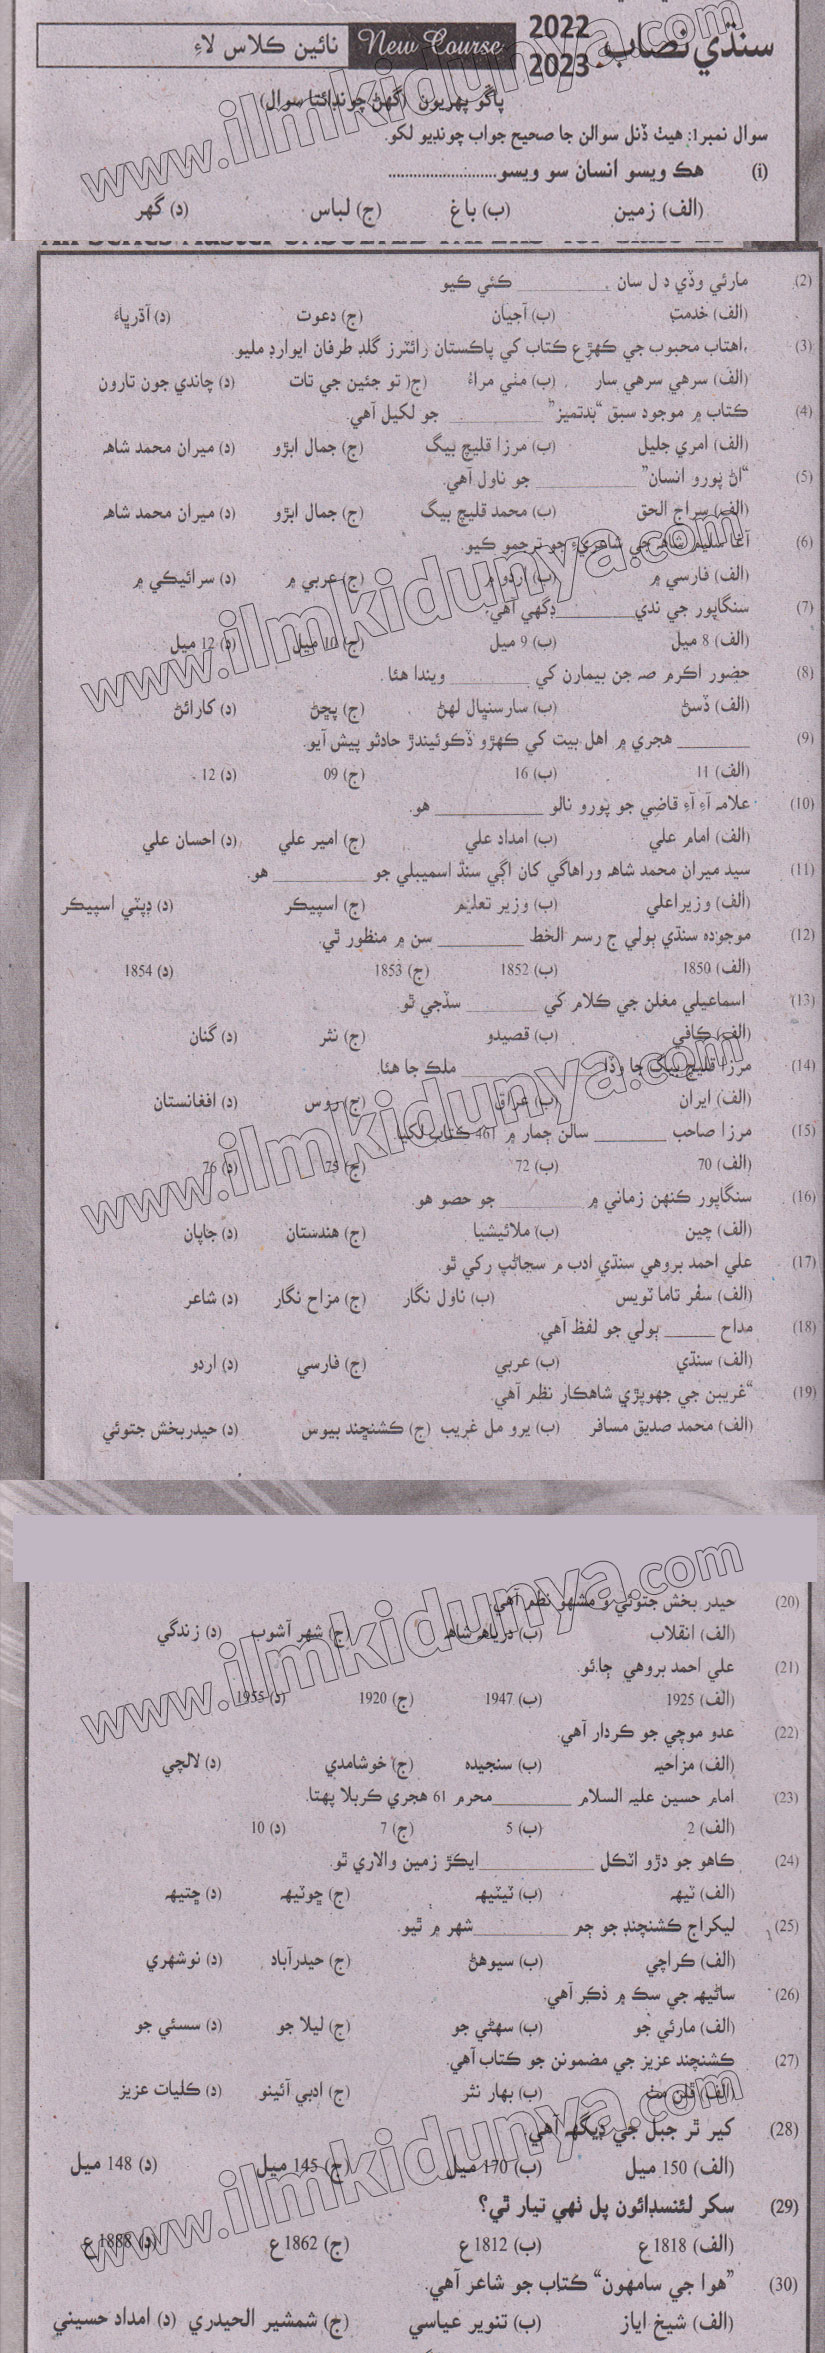 سنڌي نصاب 2022 2023 New Course نائين ڪلاس لاءِ
ڀاڱو پهريون (گھڻ چونڊائتا سوال)
سوال نمبر1: هيٺ ڏنل سوالن جا صحيح جواب چونڊيو لکو.
(i) هڪ ويسو انسان سو ويسو........................
(الف) زمين (ب) باغ (ج) لباس (د) گھر
(2) مارئي وڏي دل سان __________ ڪئي ڪيو
(الف) خدمت (ب) آجيان (ج) دعوت (د) آڌرڀاءَ
(3) اهتاب محبوب جي ڪهڙي ڪتاب کي پاڪستان رائٽرز گلڊ طرفان ايوارڊ مليو.
(الف) سرهي سرهي سار (ب) مٺي مراد (ج) تو جئين جي تات (د) چاندي جون تارون
(4) ڪتاب ۾ موجود سبق "بدتميز" __________ جو لکيل آهي.
(الف) امري جليل (ب) مرزا قليچ بيگ (ج) جمال ابڙو (د) ميران محمد شاهه
(5) "اڻ پورو انسان" __________ جو ناول آهي.
(الف) سراج الحق (ب) محمد قليچ بيگ (ج) جمال ابڙو (د) ميران محمد شاهه
(6) آغا سليم شاهه جي شاعريءَ جو ترجمو ڪيو.
(الف) فارسي ۾ (ب) اردو ۾ (ج) عربي ۾ (د) سرائيڪي ۾
(7) سنگاپور جي ندي__________ڊگهي آهي.
(الف) 8 ميل (ب) 9 ميل (ج) 10 ميل (د) 12 ميل
(8) حضور اڪرم صه جن بيمارن کي __________ ويندا هئا.
(الف) ڏسڻ (ب) سارسنڀال لهڻ (ج) پڇڻ (د) ڪارائڻ
(9) __________ هجري ۾ اهل بيت کي ڪهڙو ڏکوئيندڙ حادثو پيش آيو.
(الف) 11 (ب) 16 (ج) 09 (د) 12
(10) علامه آءِ آءِ قاضي جو پورو نالو __________ هو.
(الف) امام علي (ب) امداد علي (ج) امير علي (د) احسان علي
(11) سيد ميران محمد شاهه وراهاگي کان اڳي سنڌ اسيمبلي جو __________ هو.
(الف) وزيراعلي (ب) وزير تعليم (ج) اسپيڪر (د) ڊپٽي اسپيڪر
(12) موجوده سنڌي ٻولي ج رسم الخط __________ سن ۾ منظور ٿي.
(الف) 1850 (ب) 1852 (ج) 1853 (د) 1854
(13) اسماعيلي مغلن جي ڪلام کي __________ سڏجي ٿو.
(الف) ڪافي (ب) قصيدو (ج) نثر (د) گنان
(14) مرزا قليچ بيگ جا وڏا __________ ملڪ جا هئا.
(الف) ايران (ب) عراق (ج) روس (د) افغانستان
(15) مرزا صاحب __________ سالن ڄمار ۾ 461 ڪتاب لکيا.
(الف) 70 (ب) 72 (ج) 75 (د) 76
(16) سنگاپور ڪنهن زماني ۾ __________ جو حصو هو.
(الف) چين (ب) ملائيشيا (ج) هندستان (د) جاپان
(17) علي احمد بروهي سنڌي ادب ۾ سڃاڻپ رکي ٿو.
(الف) سفر تاما ٽويس (ب) ناول نگار (ج) مزاح نگار (د) شاعر
(18) مداح ______ ٻولي جو لفظ آهي.
(الف) سنڌي (ب) عربي (ج) فارسي (د) اردو
(19) "غريبن جي جهوپڙي شاهڪار نظم آهي.
(الف) محمد صديق مسافر (ب) پرو مل غريب (ج) ڪشنچند بيوس (د) حيدربخش جتوئي
(20) حيدر بخش جتوئي و مشهو نظم آهي.
(الف) انقلاب (ب) درياهه شاهه (ج) شهر آشوب (د) زندگي
(21) علي احمد بروهي ڄائو.
(الف) 1925 (ب) 1947 (ج) 1920 (د) 1955
(22) عدو موچي جو ڪردار آهي.
(الف) مزاحيه (ب) سنجيده (ج) خوشامدي (د) لالچي
(23) امام حسين عليه السلام __________محرم 61 هجري ڪربلا پهتا.
(الف) 2 (ب) 5 (ج) 7 (د) 10
(24) ڪاهو جو دڙو اٽڪل __________ايڪڙ زمين والاري ٿو.
(الف) ٽيهه (ب) ٽيٽيهه (ج) چوٽيهه (د) ڇتيهه
(25) ليکراج ڪشنچند جو ڄم __________شهر ۾ ٿيو.
(الف) ڪراچي (ب) سيوهڻ (ج) حيدرآباد (د) نوشهري
(26) ساڻيهه جي سڪ ۾ ذڪر آهي.
(الف) مارئي جو (ب) سهڻي جو (ج) ليلا جو (د) سسئي جو
(27) ڪشنچند عزيز جي مضمونن جو ڪتاب آهي.
(الف) ڦلن مٺ (ب) بهار نثر (ج) ادبي آئينو (د) ڪليات عزيز
(28) کير ٿر جبل جي ڊيگهه آهي
(الف) 150 ميل (ب) 170 ميل (ج) 145 ميل (د) 148 ميل
(29) سکر لئنسڊائون پل ٺهي تيار ٿي؟
(الف) 1818ع (ب) 1812ع (ج) 1862ع (د) 1888ع
(30) "هوا جي سامهون" ڪتاب جو شاعر آهي.
(الف) شيخ اياز (ب) تنوير عباسي (ج) شمشير الحيدري (د) امداد حسيني
www.ilmkidunya.com
www.ilmkidunya.com
www.ilmkidunya.com
www.ilmkidunya.com
www.ilmkidunya.com